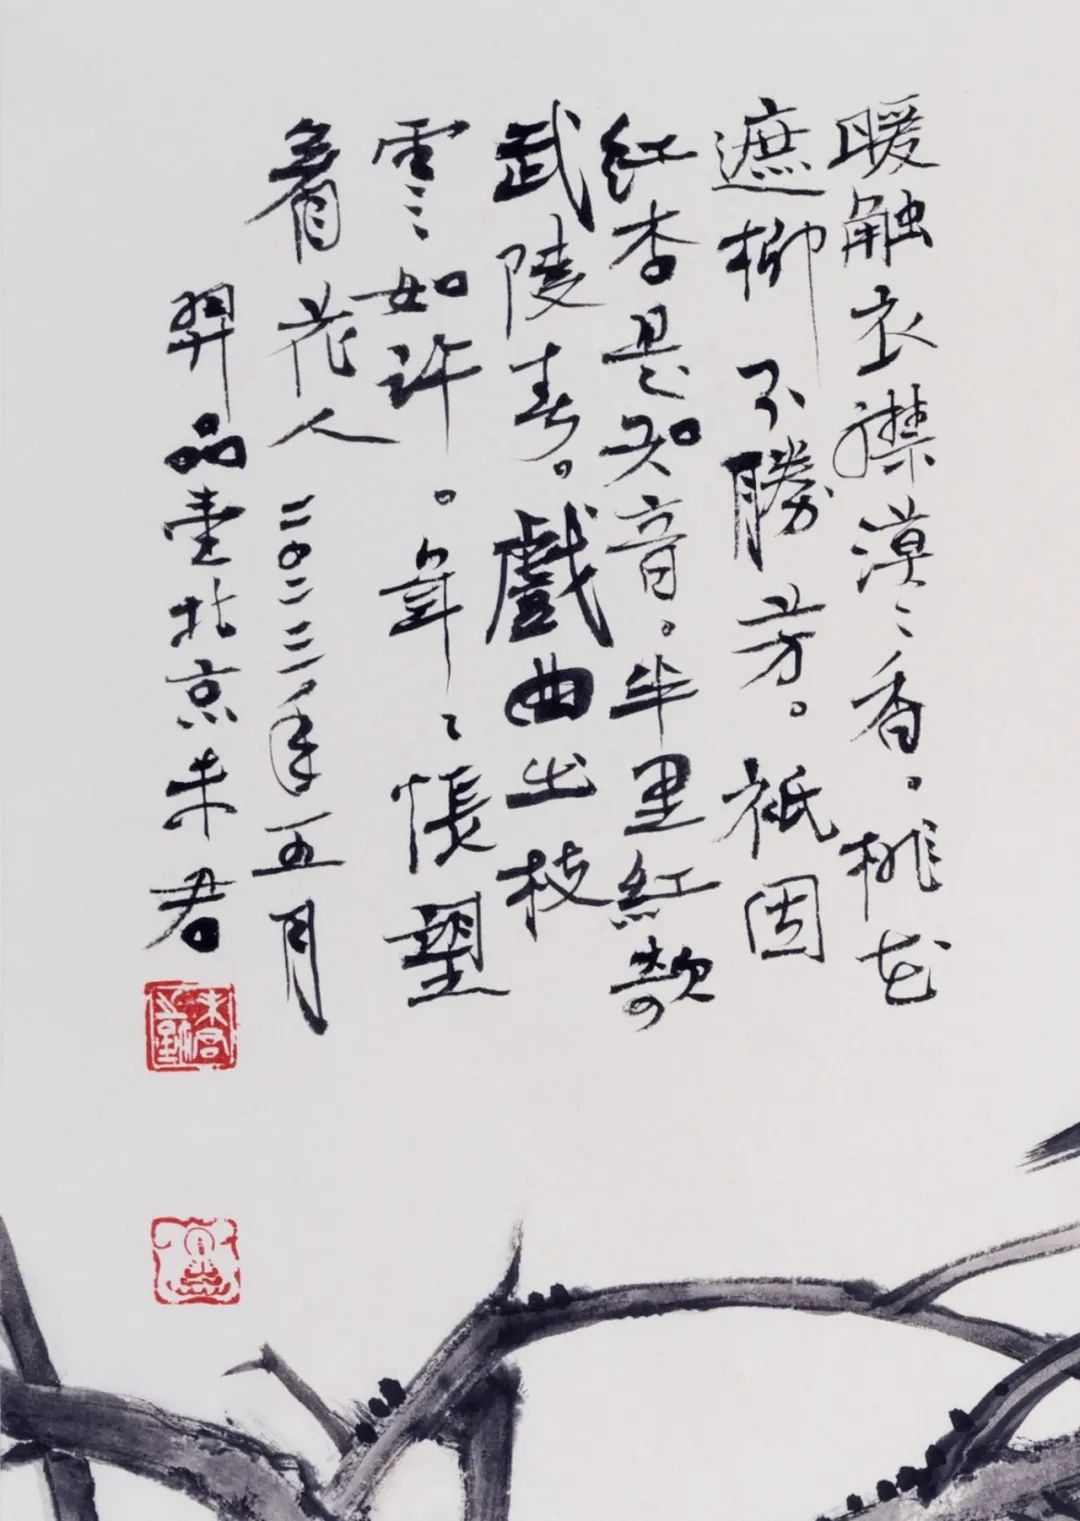 暖触衣襟漠〻香。桃花
遮柳不勝芳。祇因
紅杏是知音。半里紅欹
武陵春。戲曲出枝
雲如許。年〻悵望
看花人 二〇二三年五月
羿品堂北京朱君